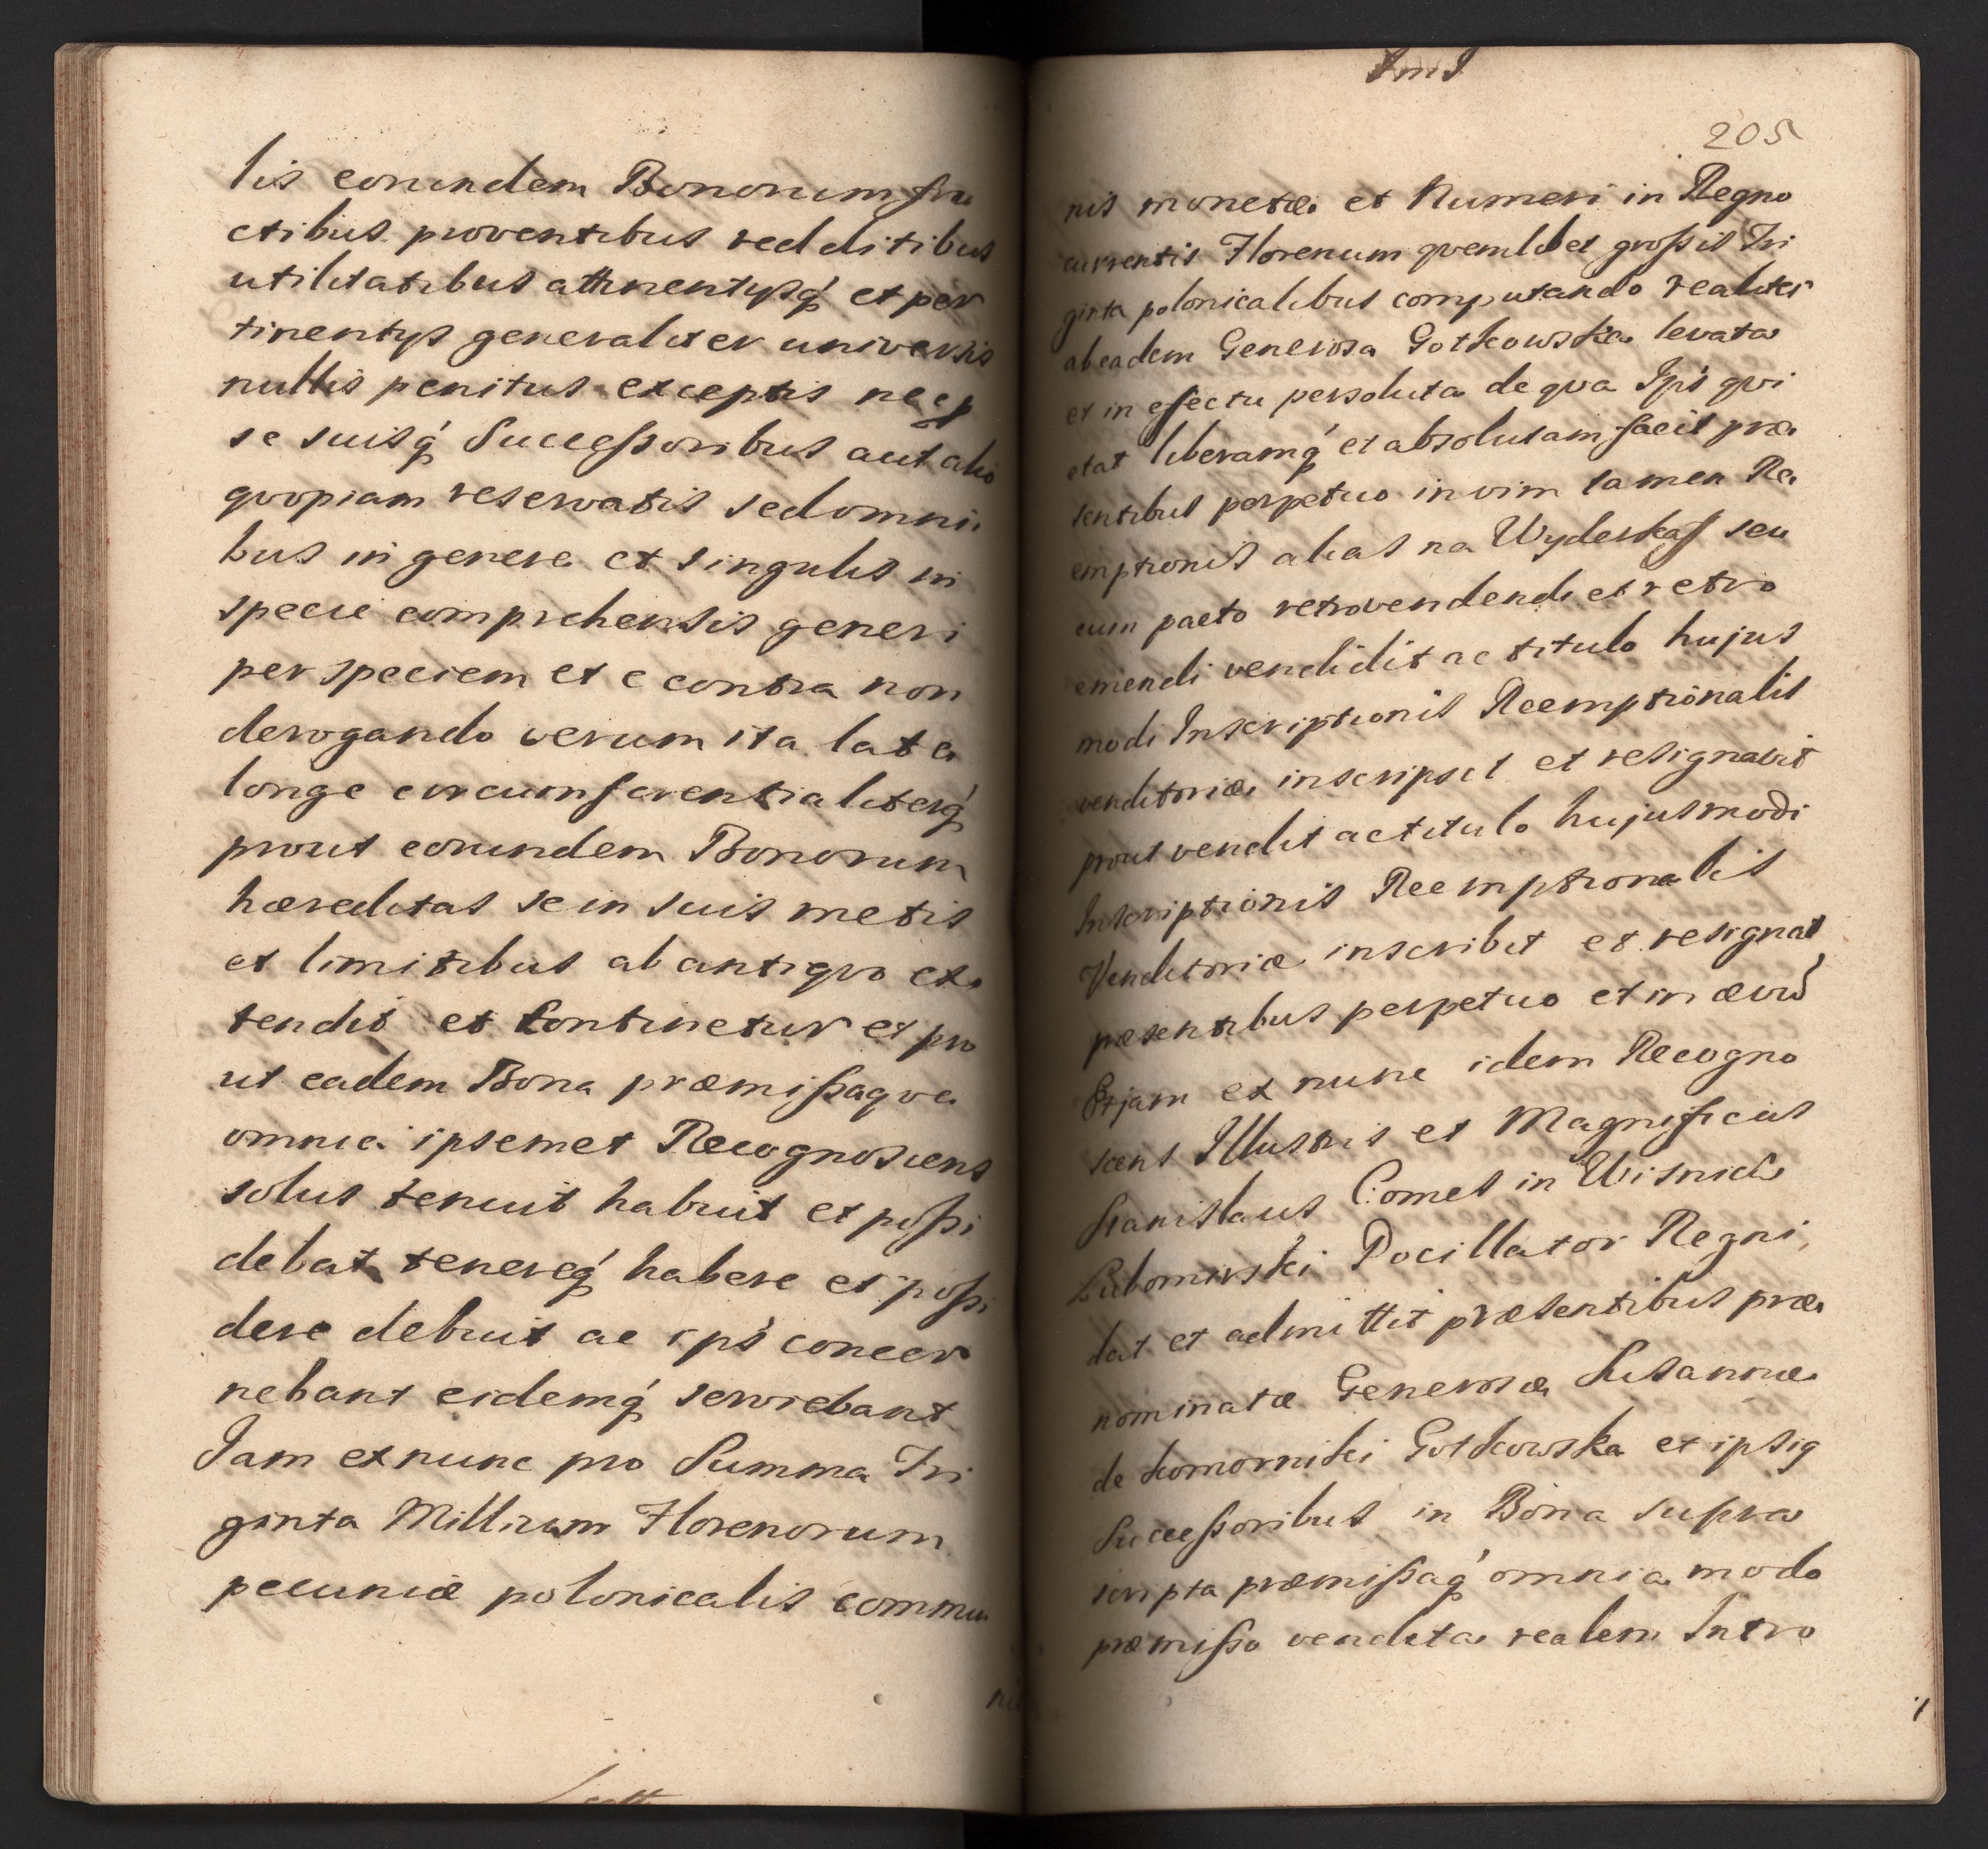 lis eorundem Bonorum fru
ctibus proventibus redditibus
utilitatibus attinentysq́ et per
tinentys generaliter universis
nullis penitus exceptis neq
se suisq́ Successoribus aut alio
qvopiam reservatis sed omni
bus in genere et singulis in
specie comprehensis generi
per speciem et e contra non
derogando verum ita late
longe circumferentialiterq́
prout eorundem Bonorum
hæreditas se in suis metis
et limitibus ab antiqvo ex
tendit et Continetur et pro
ut eadem Bona præmissaqve
omnia ipsemet Recognoscens
solus tenuit habuit et possi
debat tenereq́ habere et possi
dere debuit ac ips̃ concer
nebant eidemq́ serviebant
Jam ex nunc pro Summa Tri
ginta Millium Florenorum
pecuniæ polonicalis commu
JmJ
205
nis monetæ et Numeri in Regno
currentis Florenum qvemlibet grossis Tri
ginta polonicalibus computando realiter
ab eadem Generosa Gotkowska levata
et in effectu persoluta de qva Ips̃ qvi
etat liberamq́ et absolutam facit præ
sentibus perpetuo in vim tamen Re
emptionis alias na Wyderkaff seu
cum pacto retrovendendi et retro
emendi vendidit ac titulo hujus
modi Inscriptionis Reemptionalis
venditoriæ inscripsit et resignavit
prout vendit ac titulo hujusmodi
Inscriptionis Reemptionalis
Venditoriæ inscribit et resignat
præsentibus perpetuo et in ævũ
Etjam ex nunc idem Recogno
scens Illustris et Magnificus
Stanislaus Comes in Wisnicz
Lubomirski Pocillator Regni
dat et admittit præsentibus præ
nominatæ Generosæ Susannæ
de Komorniki Gotkowska et ipsiq
Successoribus in Bona supra
scripta præmissaq́ omnia modo
præmisso vendita realem Intro